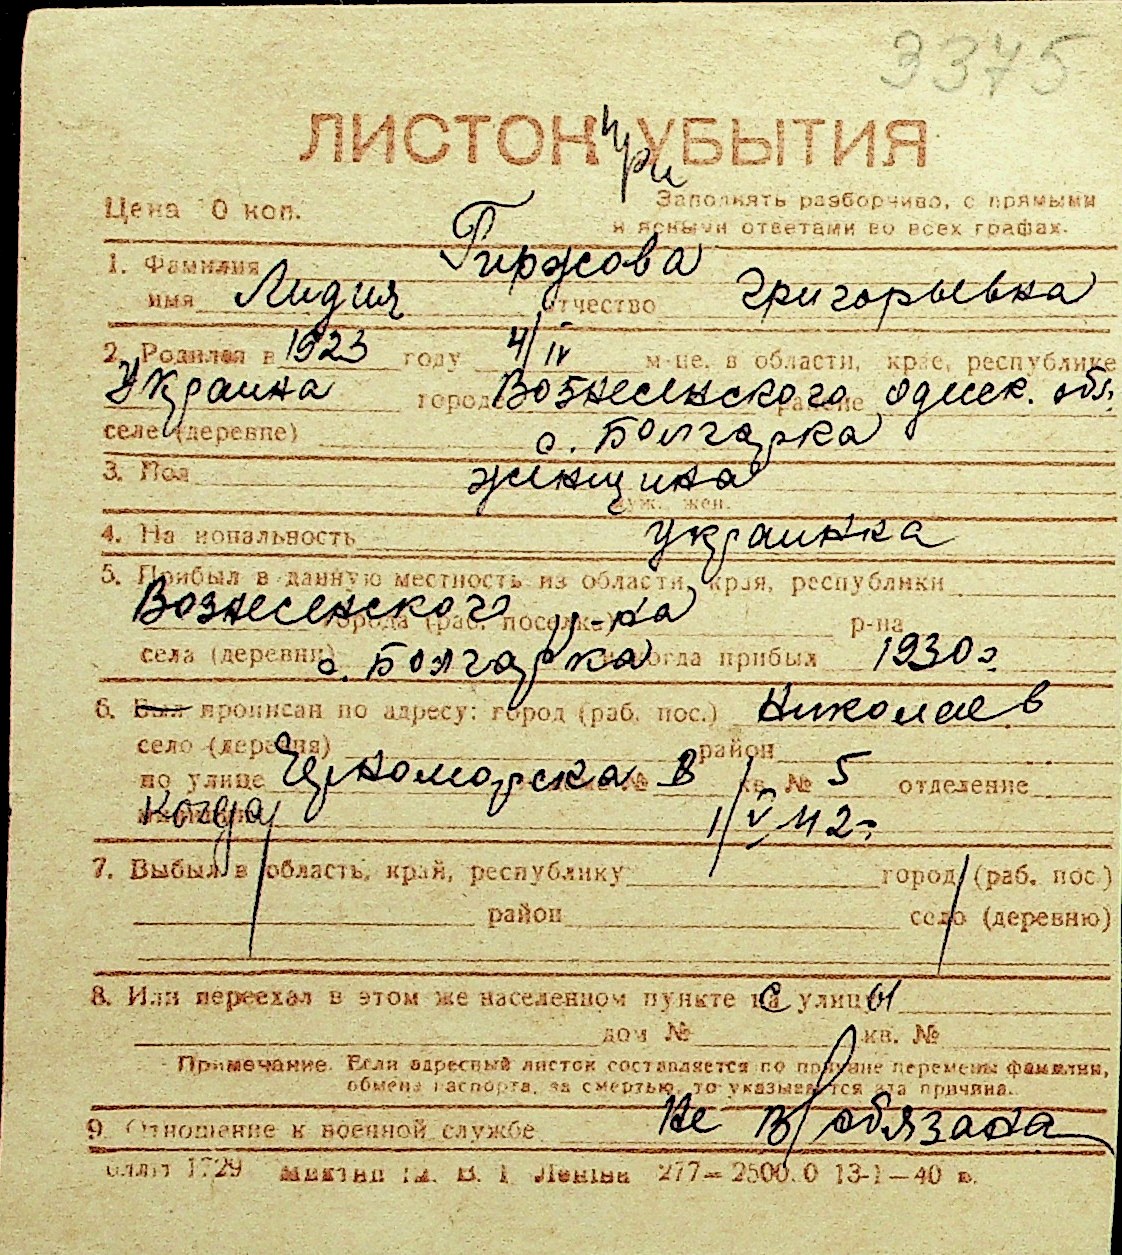 3375
ЛИСТОК при УБЫТИЯ
Цена 0 коп.
Заполнять разборчиво, с прямыми
и ясными ответами во всех графах.
1. Фамилия Гиржова
имя Лидия отчество Григорьевна
2. Родился в 1923 году 4/IV м-це, в области, крае, республике
Украина городе Вознесенского районе одеск. обл.
селе (деревне) с. Болгарка
3. Пол женщина
муж. жен.
4. Национальность украинка
5. Прибыл в данную местность из области, края, республики
Вознесенского города (раб. поселка) р-на р-на
села (деревни) с. Болгарка и когда прибыл 1930 г.
6. Был прописан по адресу: город (раб. пос.) Николаев
село (деревня) район
по улице Черноморска № 8 кв. № 5 отделение
когда 1/V 42 г.
7. Выбыл в область, край, республику город (раб. пос.)
район село (деревню)
8. Или переехал в этом же населенном пункте на с улицы
дом № кв. №
Примечание. Если адресный листок составляется по причине перемены фамилии,
обмена паспорта, за смертью, то указывается эта причина.
9. Отношение к военной службе не в/обязана
1729 им. В. И. Ленина 277—2500.0 13-1—40 г.